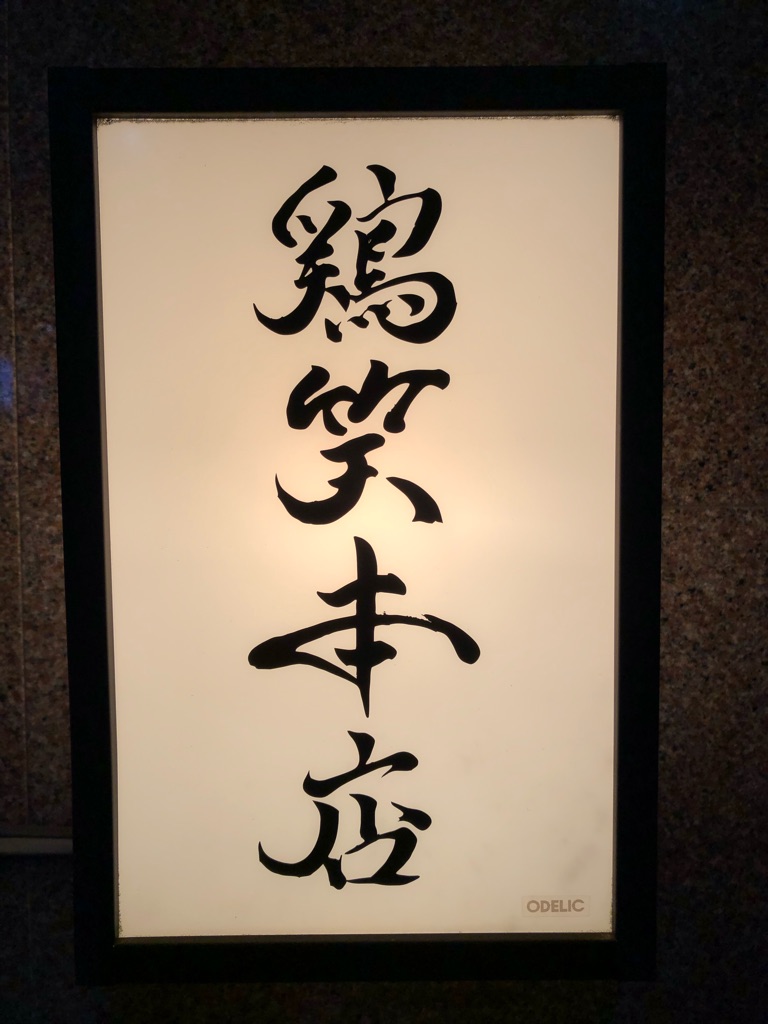 鶏笑本店
ODELIC